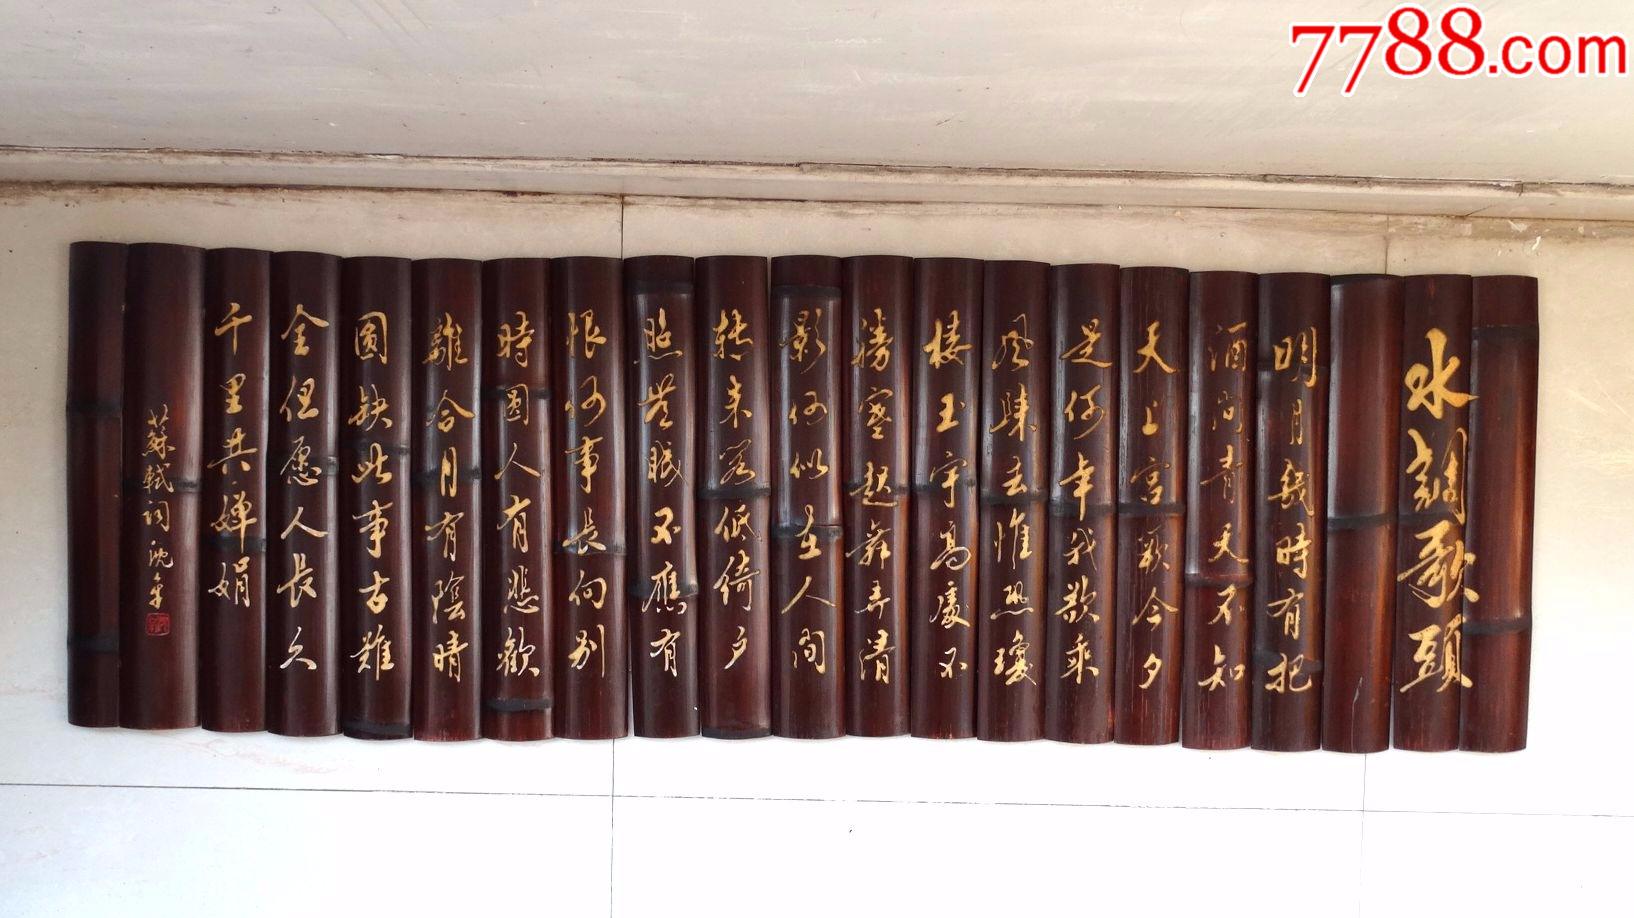 7788.com
水調歌頭
明月幾時有把
酒问青天不知
天上宫闕今夕
是何年我欲乘
風歸去惟恐瓊
楼玉宇高處不
勝寒起舞弄清
影何似在人间
转朱阁低绮户
照無眠不應有
恨何事長向别
時圆人有悲歡
離合月有陰晴
圆缺此事古難
全但愿人長久
千里共嬋娟
蘇軾词